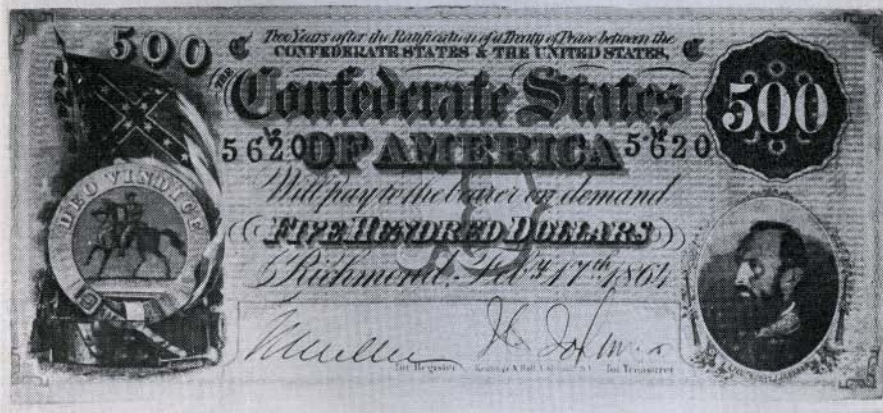 500 C Two Years after the Ratification of a Treaty of Peace between the C
CONFEDERATE STATES & THE UNITED STATES,
THE
Confederate States
500
5620 OF AMERICA 5620
DEO VINDICE
Will pay to the bearer on demand
D
FIVE HUNDRED DOLLARS
Richmond, Feb'y 17th 1864
for Register Keatinge & Ball for Treasurer